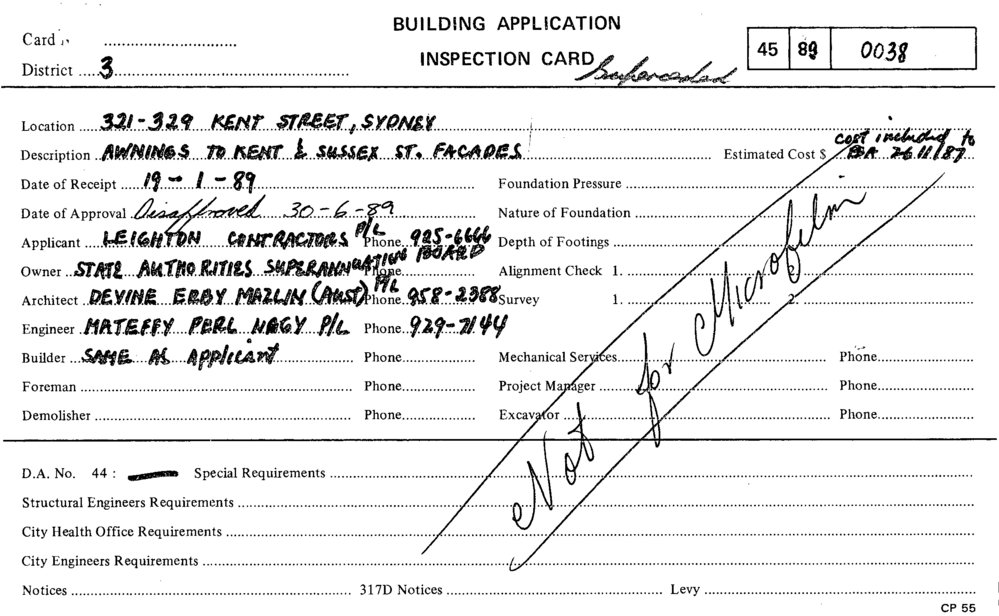 BUILDING APPLICATION
Card
INSPECTION CARD Superceded
45 89 0038
District 3
Location 321-329 KENT STREET, SYDNEY
Description AWNINGS TO KENT & SUSSEX ST. FACADES Estimated Cost $ cost included to BA 26 11/87
Date of Receipt 19-1-89 Foundation Pressure
Date of Approval Disapproved 30-6-89 Nature of Foundation
Applicant LEIGHTON CONTRACTORS P/L Phone 925-6666 Depth of Footings
Owner STATE AUTHORITIES SUPERANNUATION BOARD Phone Alignment Check 1. 2.
Architect DEVINE ERBY MAZLIN (AUST) P/L Phone 958-2388 Survey 1. 2.
Engineer MATEFFY PERL NAGY P/L Phone 929-7144
Builder SAME AS APPLICANT Phone Mechanical Services Phone
Foreman Phone Project Manager Phone
Demolisher Phone Excavator Phone
Not for Microfilm
D.A. No. 44 : Special Requirements
Structural Engineers Requirements
City Health Office Requirements
City Engineers Requirements
Notices 317D Notices Levy
CP 55